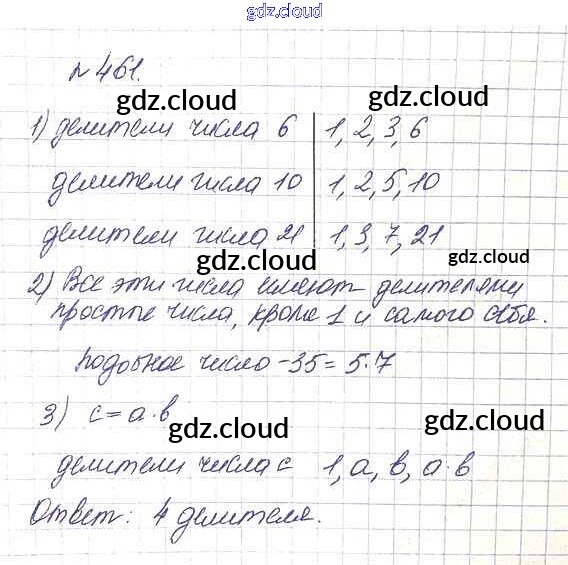 gdz.cloud
gdz.cloud
№ 461.
gdz.cloud gdz.cloud
1) делители числа 6 | 1, 2, 3, 6
делители числа 10 | 1, 2, 5, 10
делители числа 21 | 1, 3, 7, 21
gdz.cloud gdz.cloud
2) Все эти числа имеют делителями
простые числа, кроме 1 и самого себя.
Подобное число - 35 = 5·7
3) c = a·b
gdz.cloud gdz.cloud
делители числа c 1, a, b, a·b
Ответ: 4 делителя.
gdz.cloud gdz.cloud